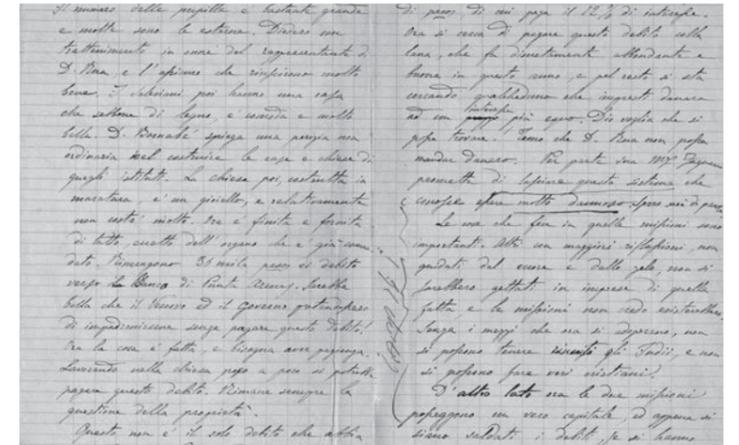 Il numero delle pupille è bastante grande
e molte sono le esterne. Diedero un
trattenimento in onore del rappresentante di
D. Rua, e l'assicuro che riuscirono molto
bene. I Salesiani poi hanno una casa
che sebbene di legno, è comoda e molto
bella D. Bernabé spiega una perizia non
ordinaria nel costruire le case e chiese di
quegli istituti. La chiesa poi, costrutta in
muratura, è un gioiello, e relativamente
non costò molto. Ora è finita e fornita
di tutto, eccetto dell'organo che è già
dato. Rimangono 36 mila pesos di debito
verso il Banco di Punta Arenas. Sarebbe
bella che il Vescovo ed il Governo pretendessero
di impadronirsene senza pagare questo debito!
Ora la cosa è fatta, e bisogna aver pazienza.
Lavorando nella chiesa poco a poco si potrebbe
pagare questo debito. Rimane sempre la
questione della proprietà.
Questo non è il solo debito che abbia
di pesos di cui paga il 12% di interesse.
Ora si cerca di pagare questo debito colla
lana, che fu discretamente abbondante e
buona in questo anno, e pel resto si sta
cercando qualcheduno che impresti danaro
ad un interesse più equo. Dio voglia che si
possa trovare. Temo che D. Rua non possa
mandar danaro. Per parte sua Mgr. Fagnano
promette di lasciare questo sistema che
conosce essere molto dannoso
Le cose che fece in quelle missioni sono
importanti. Altri con maggiori riflessioni, non
guidati dal cuore e dallo zelo, non si
sarebbero gettati in imprese di quella
fatta e le missioni non credo esisterebbero.
Senza i mezzi che ora si adoperano, non
si possono tenere riuniti gli Indii, e non
si possono fare veri cristiani.
D'altro lato ora le due missioni
posseggono un vero capitale, ed appena si
siano saldati i debiti se si hanno